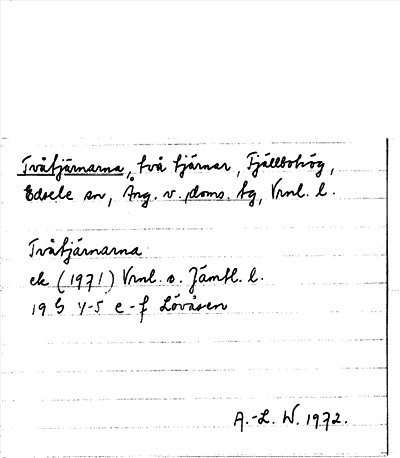 Tvåtjärnarna, två tjärnar, Fjällbohög,
Edsele sn, Ång. v. doms. tg, Vrnl. l.
Tvåtjärnarna
ek (1971) Vrnl. o. Jämtl. l.
19 G 4-5 e-f Lövåsen
A.-L. W. 1972.